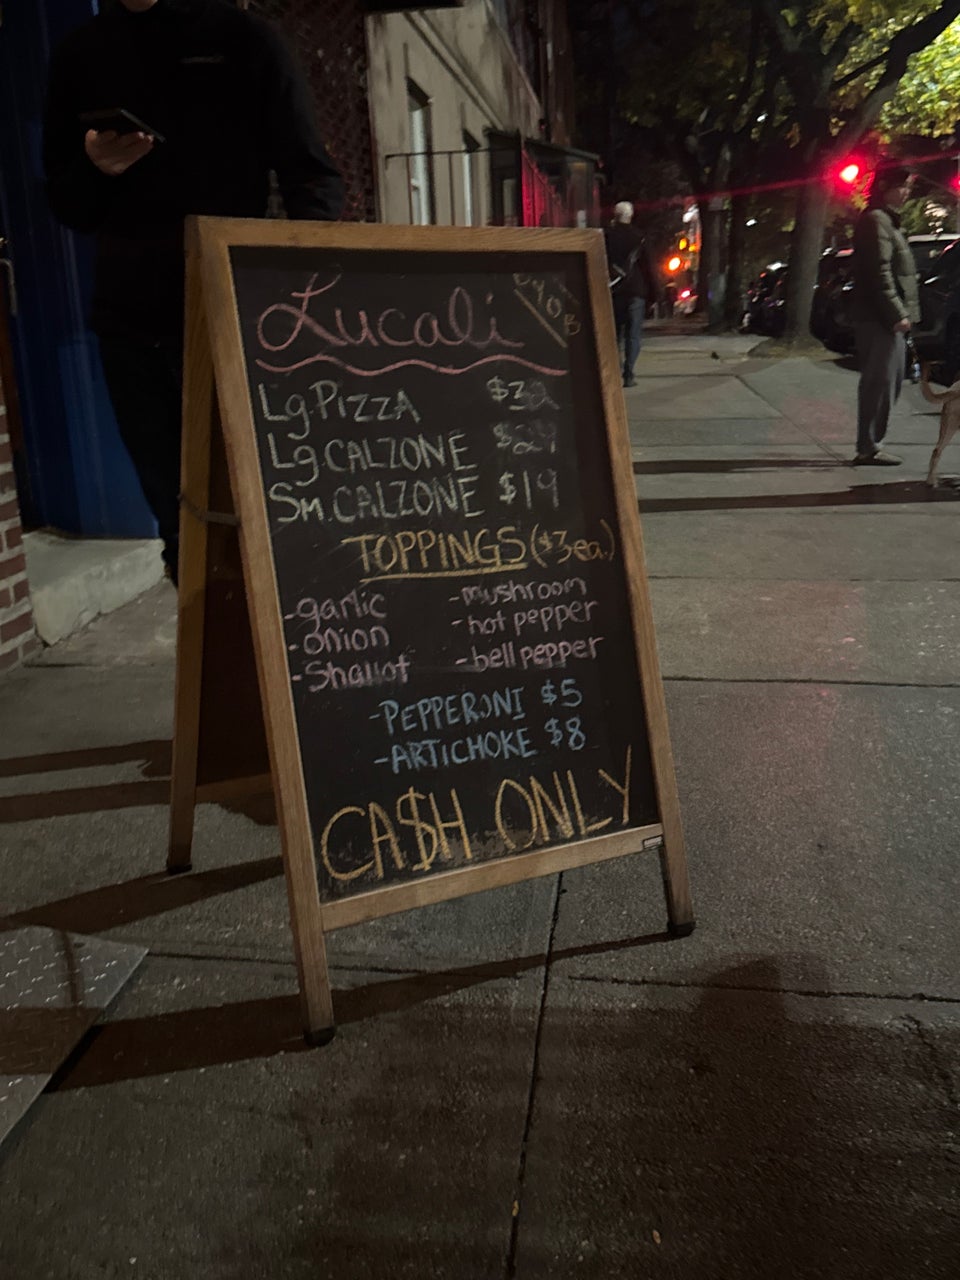 Lucali
BYOB
Lg. PIZZA $32
Lg. CALZONE
Sm. CALZONE $19
TOPPINGS ($3ea.)
-garlic -mushroom
-onion -hot pepper
-Shallot -bell pepper
-PEPPERONI $5
-ARTICHOKE $8
CA$H ONLY